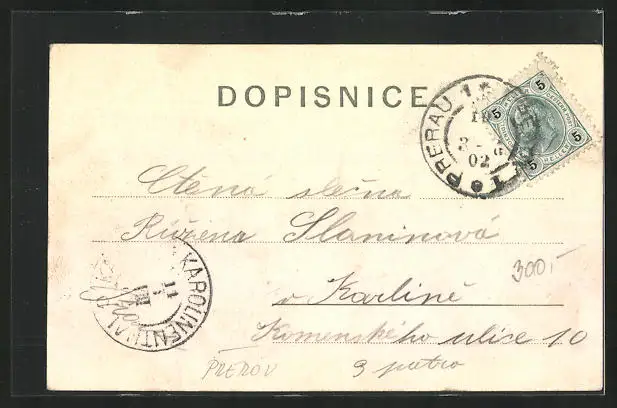 DOPISNICE
PRERAU 1
3
02
5 5 5 5
HELLER
Ctěná slečna
Růžena Slaninová
v Karlíně
Komenského ulice 10
3 patro
300,-
KAROLINENTHAL
11
PREROV